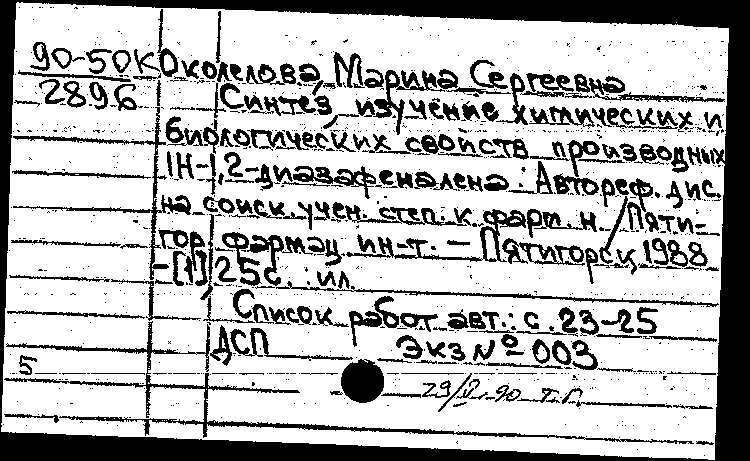 90-50К Околелова, Марина Сергеевна
2896 Синтез, изучение химических и
биологических свойств производных
1Н-1,2-диазафеналена: Автореф. дис.
на соиск. учен. степ. к. фарм. н. / Пяти-
гор. фармац. ин-т. — Пятигорск, 1988
-[1], 25с. : ил.
Список работ авт.: с. 23-25
ДСП Экз № 003
5
29/V-90 т.п.